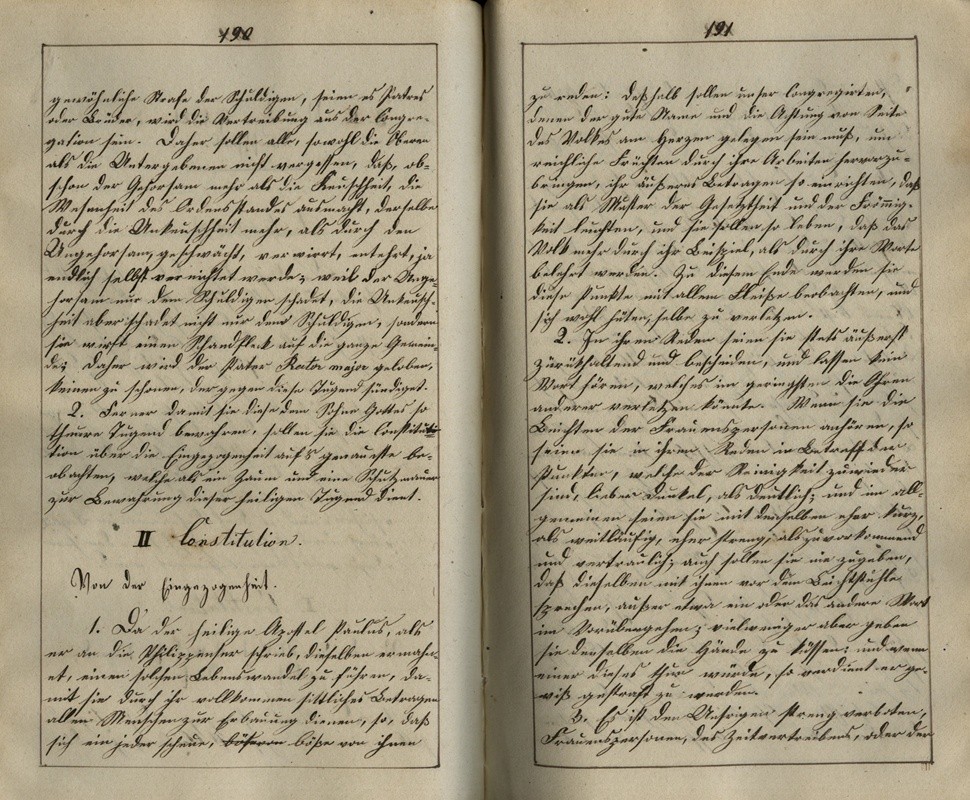 190
gewöhnliche Strafe der Schuldigen, seien es Patres
oder Brüder, wird die Vertreibung aus der Congre-
gation sein. Daher sollen alle, sowohl die Obern
als die Untergebenen nicht vergessen, daß, ob-
schon der Gehorsam mehr als die Keuschheit, die
Wesenheit des Ordensstandes ausmacht, derselbe
durch die Unkeuschheit mehr, als durch den
Ungehorsam, geschwächt, verwirrt, entehrt, ja
endlich selbst vernichtet werde; weil der Unge-
horsam nur dem Schuldigen schadet, die Unkeusch-
heit aber schadet nicht nur dem Schuldigen, sondern
sie wirft einen Schandfleck auf die ganze Gemein-
de; daher wird der Pater Rector major geloben,
keinen zu schonen, der gegen diese Tugend sündiget.
2. Ferner damit sie diese dem Sohne Gottes so
theuere Tugend bewahren, sollen sie die Constitu-
tion über die Eingezogenheit aufs genaueste be-
obachten, welche als ein Zaum und eine Schutzmauer
zur Bewahrung dieser heiligen Tugend dient.
II Constitution.
Von der Eingezogenheit.
1. Da der heilige Apostel Paulus, als
er an die Philippenser schrieb, dieselben ermahn-
et, einen solchen Lebenswandel zu führen, da-
mit sie durch ihr vollkommen sittliches Betragen
allen Menschen zur Erbauung dienen, so, daß
sich ein jeder scheue, böseren böse von ihnen
191
zu reden: deßhalb sollen unser Congregirten,
denen der gute Name und die Achtung von Seite
des Volkes am Herzen gelegen sein muß, um
reichliche Früchten durch ihre Arbeiten hervorzu-
bringen, ihr äußeres Betragen so einrichten, daß
sie als Muster der Gesetztheit und der Frömmig-
keit leuchten, und sie sollen so leben, daß das
Volk mehr durch ihr Beispiel, als durch ihre Worte
belehrt werden. Zu diesem Ende werden sie
diese Punkte mit allem Fleiße beobachten, und
sich wohl hüten, selbe zu verletzen.
2. In ihren Reden seien sie stets äußerst
zurückhaltend und bescheiden, und lassen kein
Wort hören, welches im geringsten die Ohren
anderer verletzen könnte. Wenn sie die
Beichten der Frauenspersonen anhören, so
seien sie in ihren Reden in Betreff der
Punkten, welche der Reinigkeit zuwieder
sind, lieber dunkel, als deutlich; und im all-
gemeinen seien sie mit denselben eher kurz,
als weitläufig, eher streng, als zuvorkommend
und vertraulich; auch sollen sie nie zugeben,
daß dieselben mit ihnen vor dem Beichtstuhle
sprechen, außer etwa ein oder das andere Wort
im Vorübergehen; vielweniger aber geben
sie denselben die Hände zu küssen: und wenn
einer dieses thun würde, so verdient er ge-
wiß gestraft zu werden.
3. Es ist den Unsrigen streng verboten,
Frauenspersonen, des Zeitvertreibens, oder der